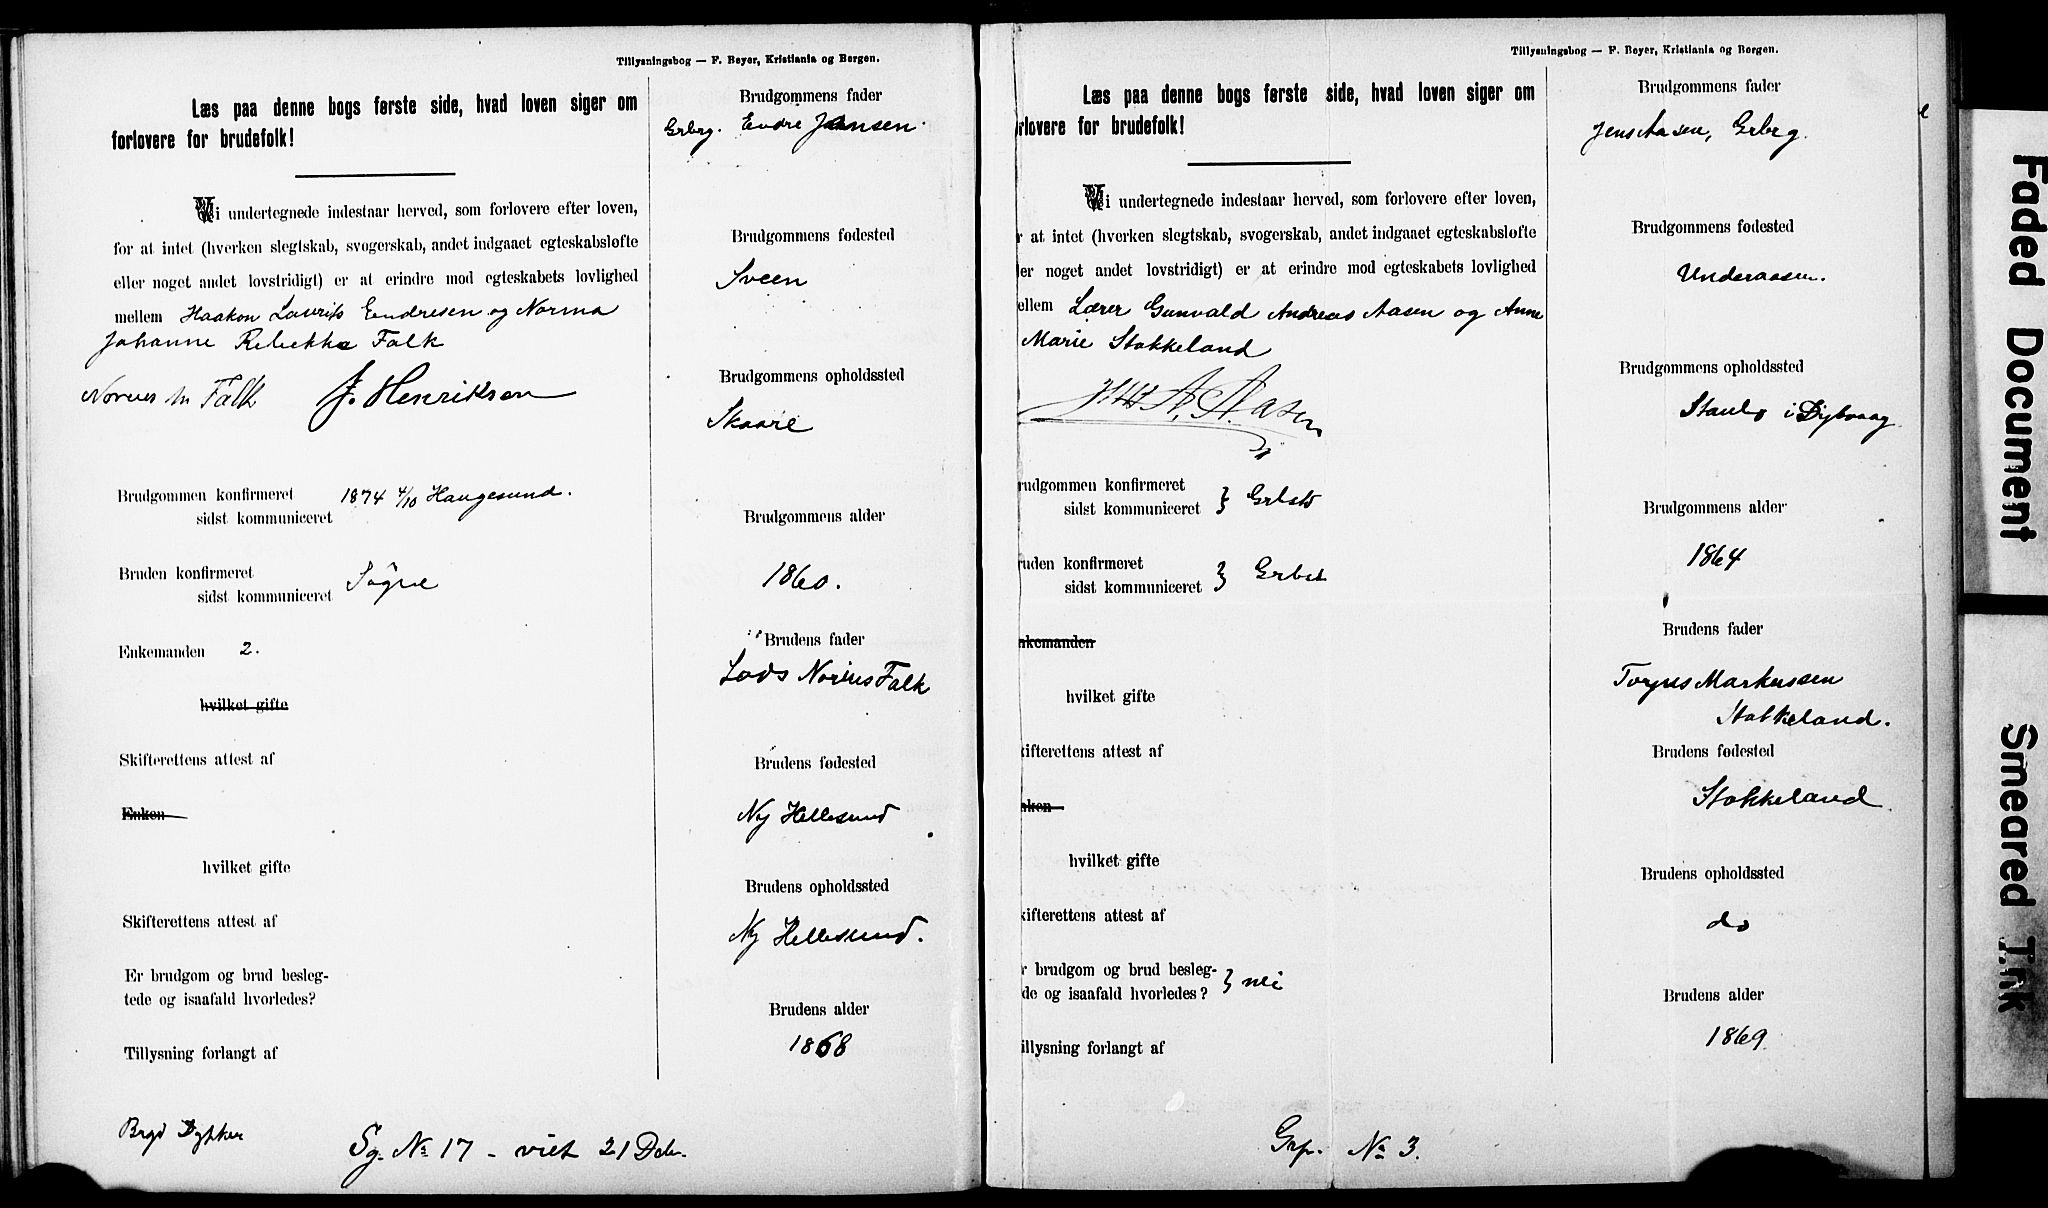 Tillysningsbog — F. Beyer, Kristiania og Bergen.
Læs paa denne bogs første side, hvad loven siger om
forlovere for brudefolk!
Vi undertegnede indestaar herved, som forlovere efter loven,
for at intet (hverken slegtskab, svogerskab, andet indgaaet egteskabsløfte
eller noget andet lovstridigt) er at erindre mod egteskabets lovlighed
mellem Haakon Laurits Endresen og Norma
Johanne Rebekka Falk
Falk J. Henriksen
Brudgommen konfirmeret 1874 4/10 Haugesund.
sidst kommuniceret
Bruden konfirmeret Søgne
sidst kommuniceret
Enkemanden 2.
hvilket gifte
Skifterettens attest af
Enken
hvilket gifte
Skifterettens attest af
Er brudgom og brud besleg-
tede og isaafald hvorledes?
Tillysning forlangt af
Dykker
Sg. No 17 - viet 21 Dcbr.
Brudgommens fader
Grbrg. Endre Jansen.
Brudgommens fødested
Sveen
Brudgommens opholdssted
Skaare
Brudgommens alder
1860.
Brudens fader
Lods Norius Falk
Brudens fødested
Ny Hellesund
Brudens opholdssted
Ny Hellesund.
Brudens alder
1868
Tillysningsbog — F. Beyer, Kristiania og Bergen.
Læs paa denne bogs første side, hvad loven siger om
rlovere for brudefolk!
Vi undertegnede indestaar herved, som forlovere efter loven,
r at intet (hverken slegtskab, svogerskab, andet indgaaet egteskabsløfte
ler noget andet lovstridigt) er at erindre mod egteskabets lovlighed
ellem Lærer Gunvald Andreas Aasen og Anne
Marie Stokkeland
A. Aasen
rudgommen konfirmeret
sidst kommuniceret } Grbst
ruden konfirmeret
sidst kommuniceret } Grbst
nkemanden
hvilket gifte
kifterettens attest af
nken
hvilket gifte
kifterettens attest af
r brudgom og brud besleg-
de og isaafald hvorledes? } nei
illysning forlangt af
Grp. No 3.
Brudgommens fader
Jens Aasen, Grbrg.
Brudgommens fødested
Underaasen.
Brudgommens opholdssted
i Dybvaag
Brudgommens alder
1864
Brudens fader
Torjus Markussen
Stokkeland.
Brudens fødested
Stokkeland
Brudens opholdssted
do
Brudens alder
1869
Faded Document
Smeared Ink